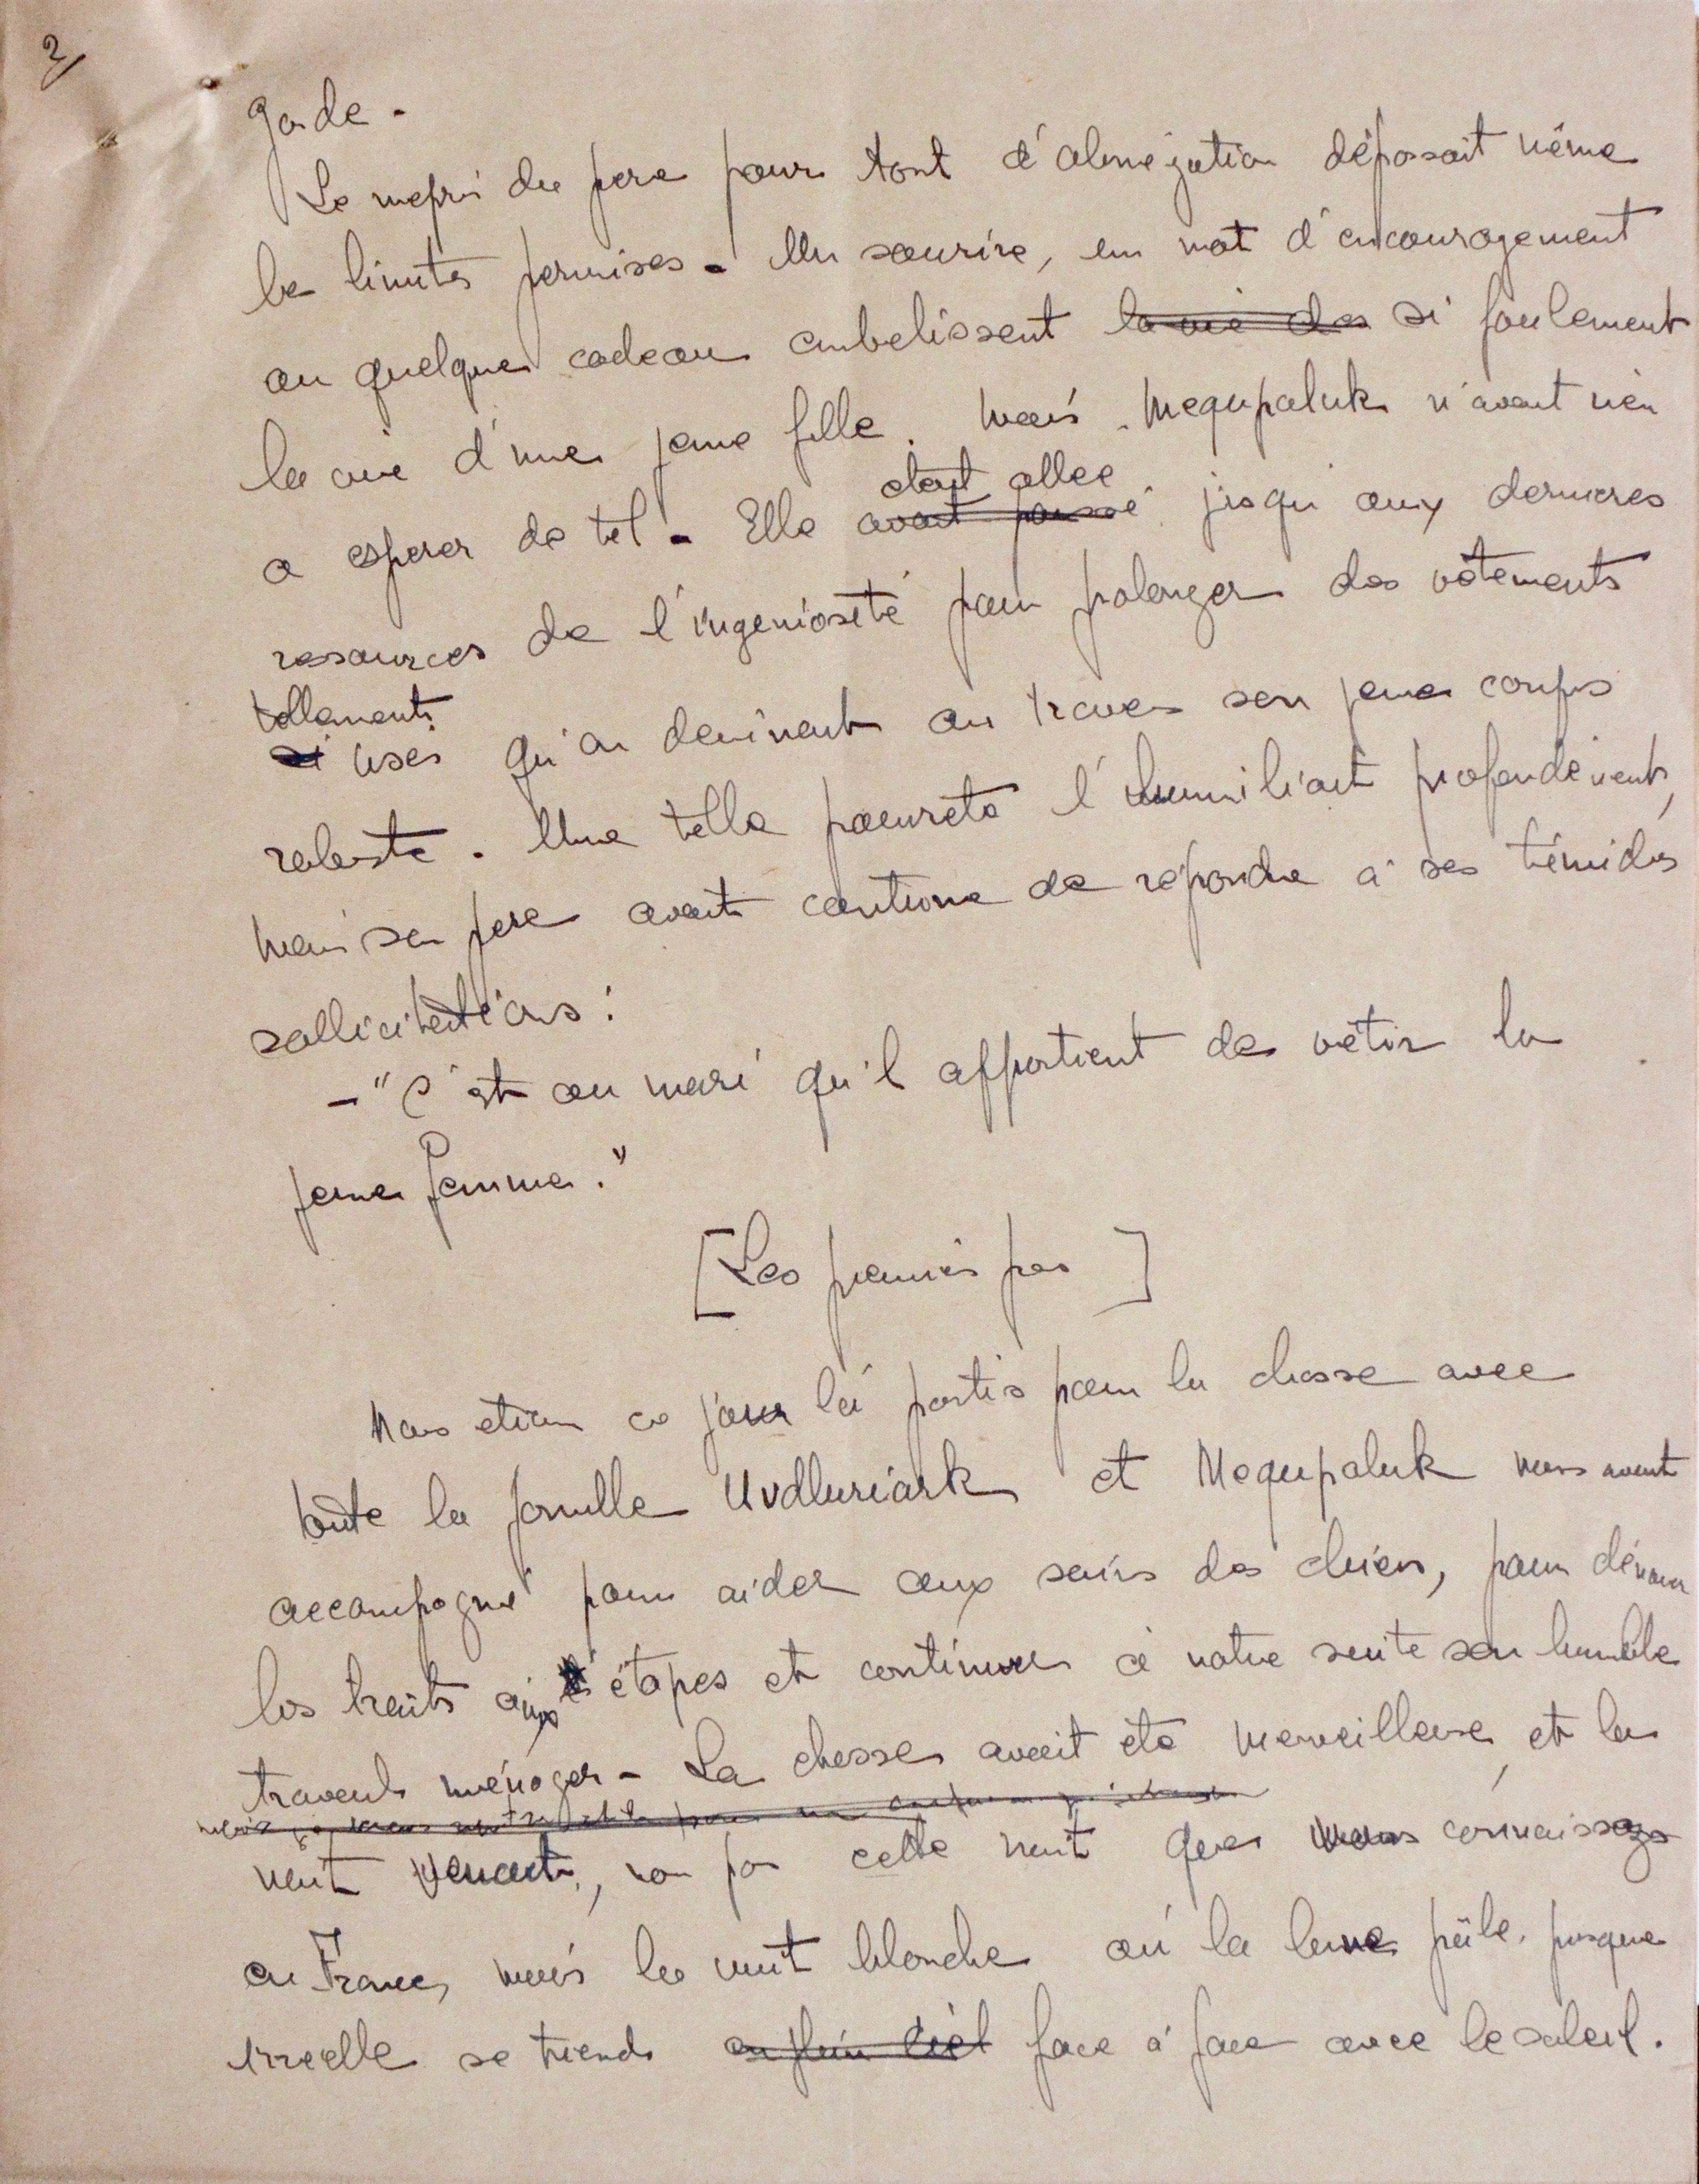 2/
garde.
Le mepri du pere pour tant d'abnegation dépassait même
les limites permises. Un sourire, un mot d'encouragement
ou quelque cadeau embelissent la vie des si facilement
la vie d'une jeune fille. Mais Mequpaluk n'avait rien
a esperer de tel. Elle avait passé etait allee jusqu'aux dernieres
ressources de l'ingeniosité pour prolonger des vêtements
si tellement usés qu'on devinait au travers son jeune corps
robuste. Une telle pauvreté l'humiliait profondément,
mais son pere avait coutume de répondre à ses timides
sollicitations:
-"C'est au mari qu'il appartient de vêtir la
jeune femme."
[Les premiers pas]
Nous etions ce jour là partis pour la chasse avec
toute la famille Uvdluriark et Mequpaluk nous avait
accompagné pour aider aux soins des chiens, pour dénouer
les traits aux étapes et continuer à notre suite son humble
travail ménager. La chasse avait été merveilleuse, et la
nuit venait, non pas cette nuit que vous connaissez
en France, mais la nuit blanche où la lune pâle, presque
irréelle se tient en plein ciel face à face avec le soleil.